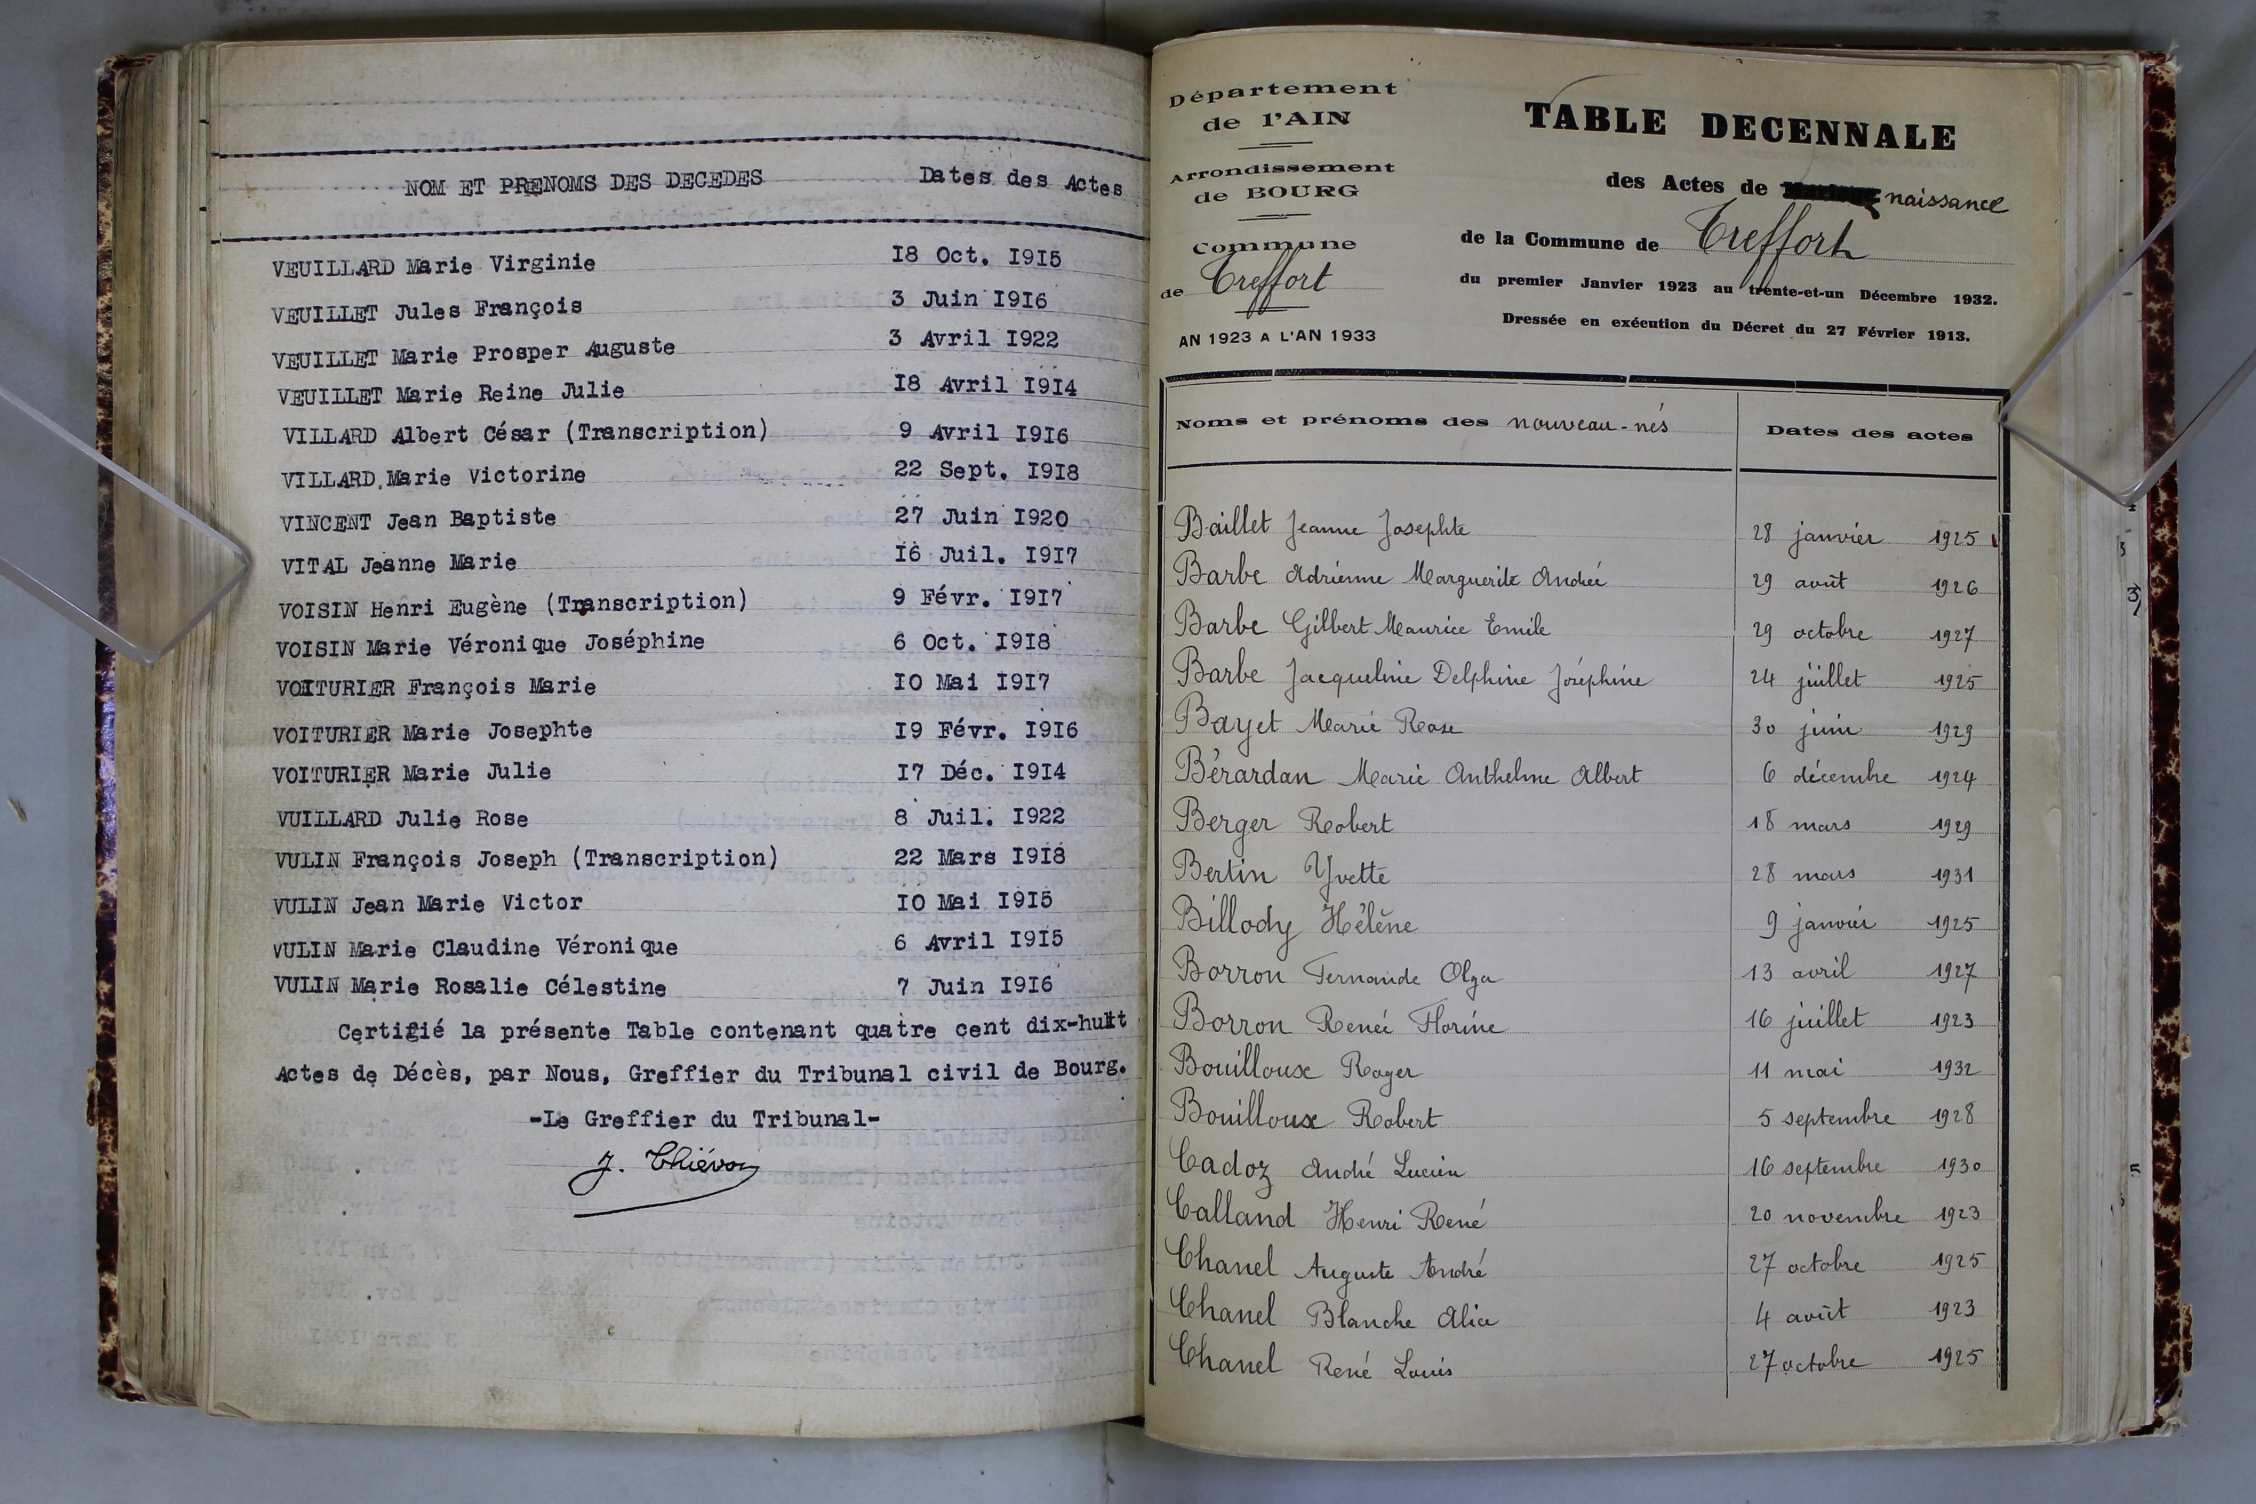 NOM ET PRENOMS DES DECEDES Dates des Actes
VEUILLARD Marie Virginie 18 Oct. 1915
VEUILLET Jules François 3 Juin 1916
VEUILLET Marie Prosper Auguste 3 Avril 1922
VEUILLET Marie Reine Julie 18 Avril 1914
VILLARD Albert César (Transcription) 9 Avril 1916
VILLARD Marie Victorine 22 Sept. 1918
VINCENT Jean Baptiste 27 Juin 1920
VITAL Jeanne Marie 16 Juil. 1917
VOISIN Henri Eugène (Transcription) 9 Févr. 1917
VOISIN Marie Véronique Joséphine 6 Oct. 1918
VOITURIER François Marie 10 Mai 1917
VOITURIER Marie Josephte 19 Févr. 1916
VOITURIER Marie Julie 17 Déc. 1914
VUILLARD Julie Rose 8 Juil. 1922
VULIN François Joseph (Transcription) 22 Mars 1918
VULIN Jean Marie Victor 10 Mai 1915
VULIN Marie Claudine Véronique 6 Avril 1915
VULIN Marie Rosalie Célestine 7 Juin 1916
Certifié la présente Table contenant quatre cent dix-huit
Actes de Décès, par Nous, Greffier du Tribunal civil de Bourg.
-Le Greffier du Tribunal-
Département
de l'AIN
Arrondissement
de BOURG
Commune
de Treffort
AN 1923 A L'AN 1933
TABLE DECENNALE
des Actes de naissance
de la Commune de Treffort
du premier Janvier 1923 au trente-et-un Décembre 1932.
Dressée en exécution du Décret du 27 Février 1913.
Noms et prénoms des nouveau-nés Dates des actes
Baillet Jeanne Josephte 28 janvier 1925
Barbe Adrienne Marguerite Andrée 29 août 1926
Barbe Gilbert Maurice Emile 29 octobre 1927
Barbe Jacqueline Delphine Joséphine 24 juillet 1925
Bayet Marie Rose 30 juin 1929
Bérardan Marie Anthelme Albert 6 décembre 1924
Berger Robert 18 mars 1929
Bertin Yvette 28 mars 1931
Billody Hélène 9 janvier 1925
Borron Fernande Olga 13 avril 1927
Borron Renée Florine 16 juillet 1923
Bouilloux Roger 11 mai 1932
Bouilloux Robert 5 septembre 1928
Cadoz André Lucien 16 septembre 1930
Calland Henri René 20 novembre 1923
Chanel Auguste André 27 octobre 1925
Chanel Blanche Alice 4 août 1923
Chanel René Louis 27 octobre 1925